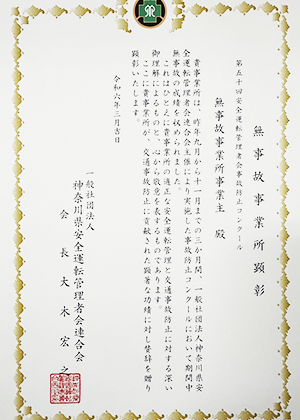 無事故事業所顕彰
第五十回安全運転管理者会事故防止コンクール
無事故事業所事業主 殿
貴事業所は、昨年九月から十一月までの三か月間、一般社団法人神奈川県安
全運転管理者会連合会主催により実施した事故防止コンクールにおいて期間中
無事故の成績を収められました。
これはひとえに貴事業所の適正な安全運転管理と交通事故防止に対する深い
御理解によるものと、心から敬意を表するものであります。
ここに貴事業所が、交通事故防止に貢献された顕著な功績に対し賛辞を贈り
顕彰いたします。
令和六年三月吉日
一般社団法人
神奈川県安全運転管理者会連合会
会長 大木宏之